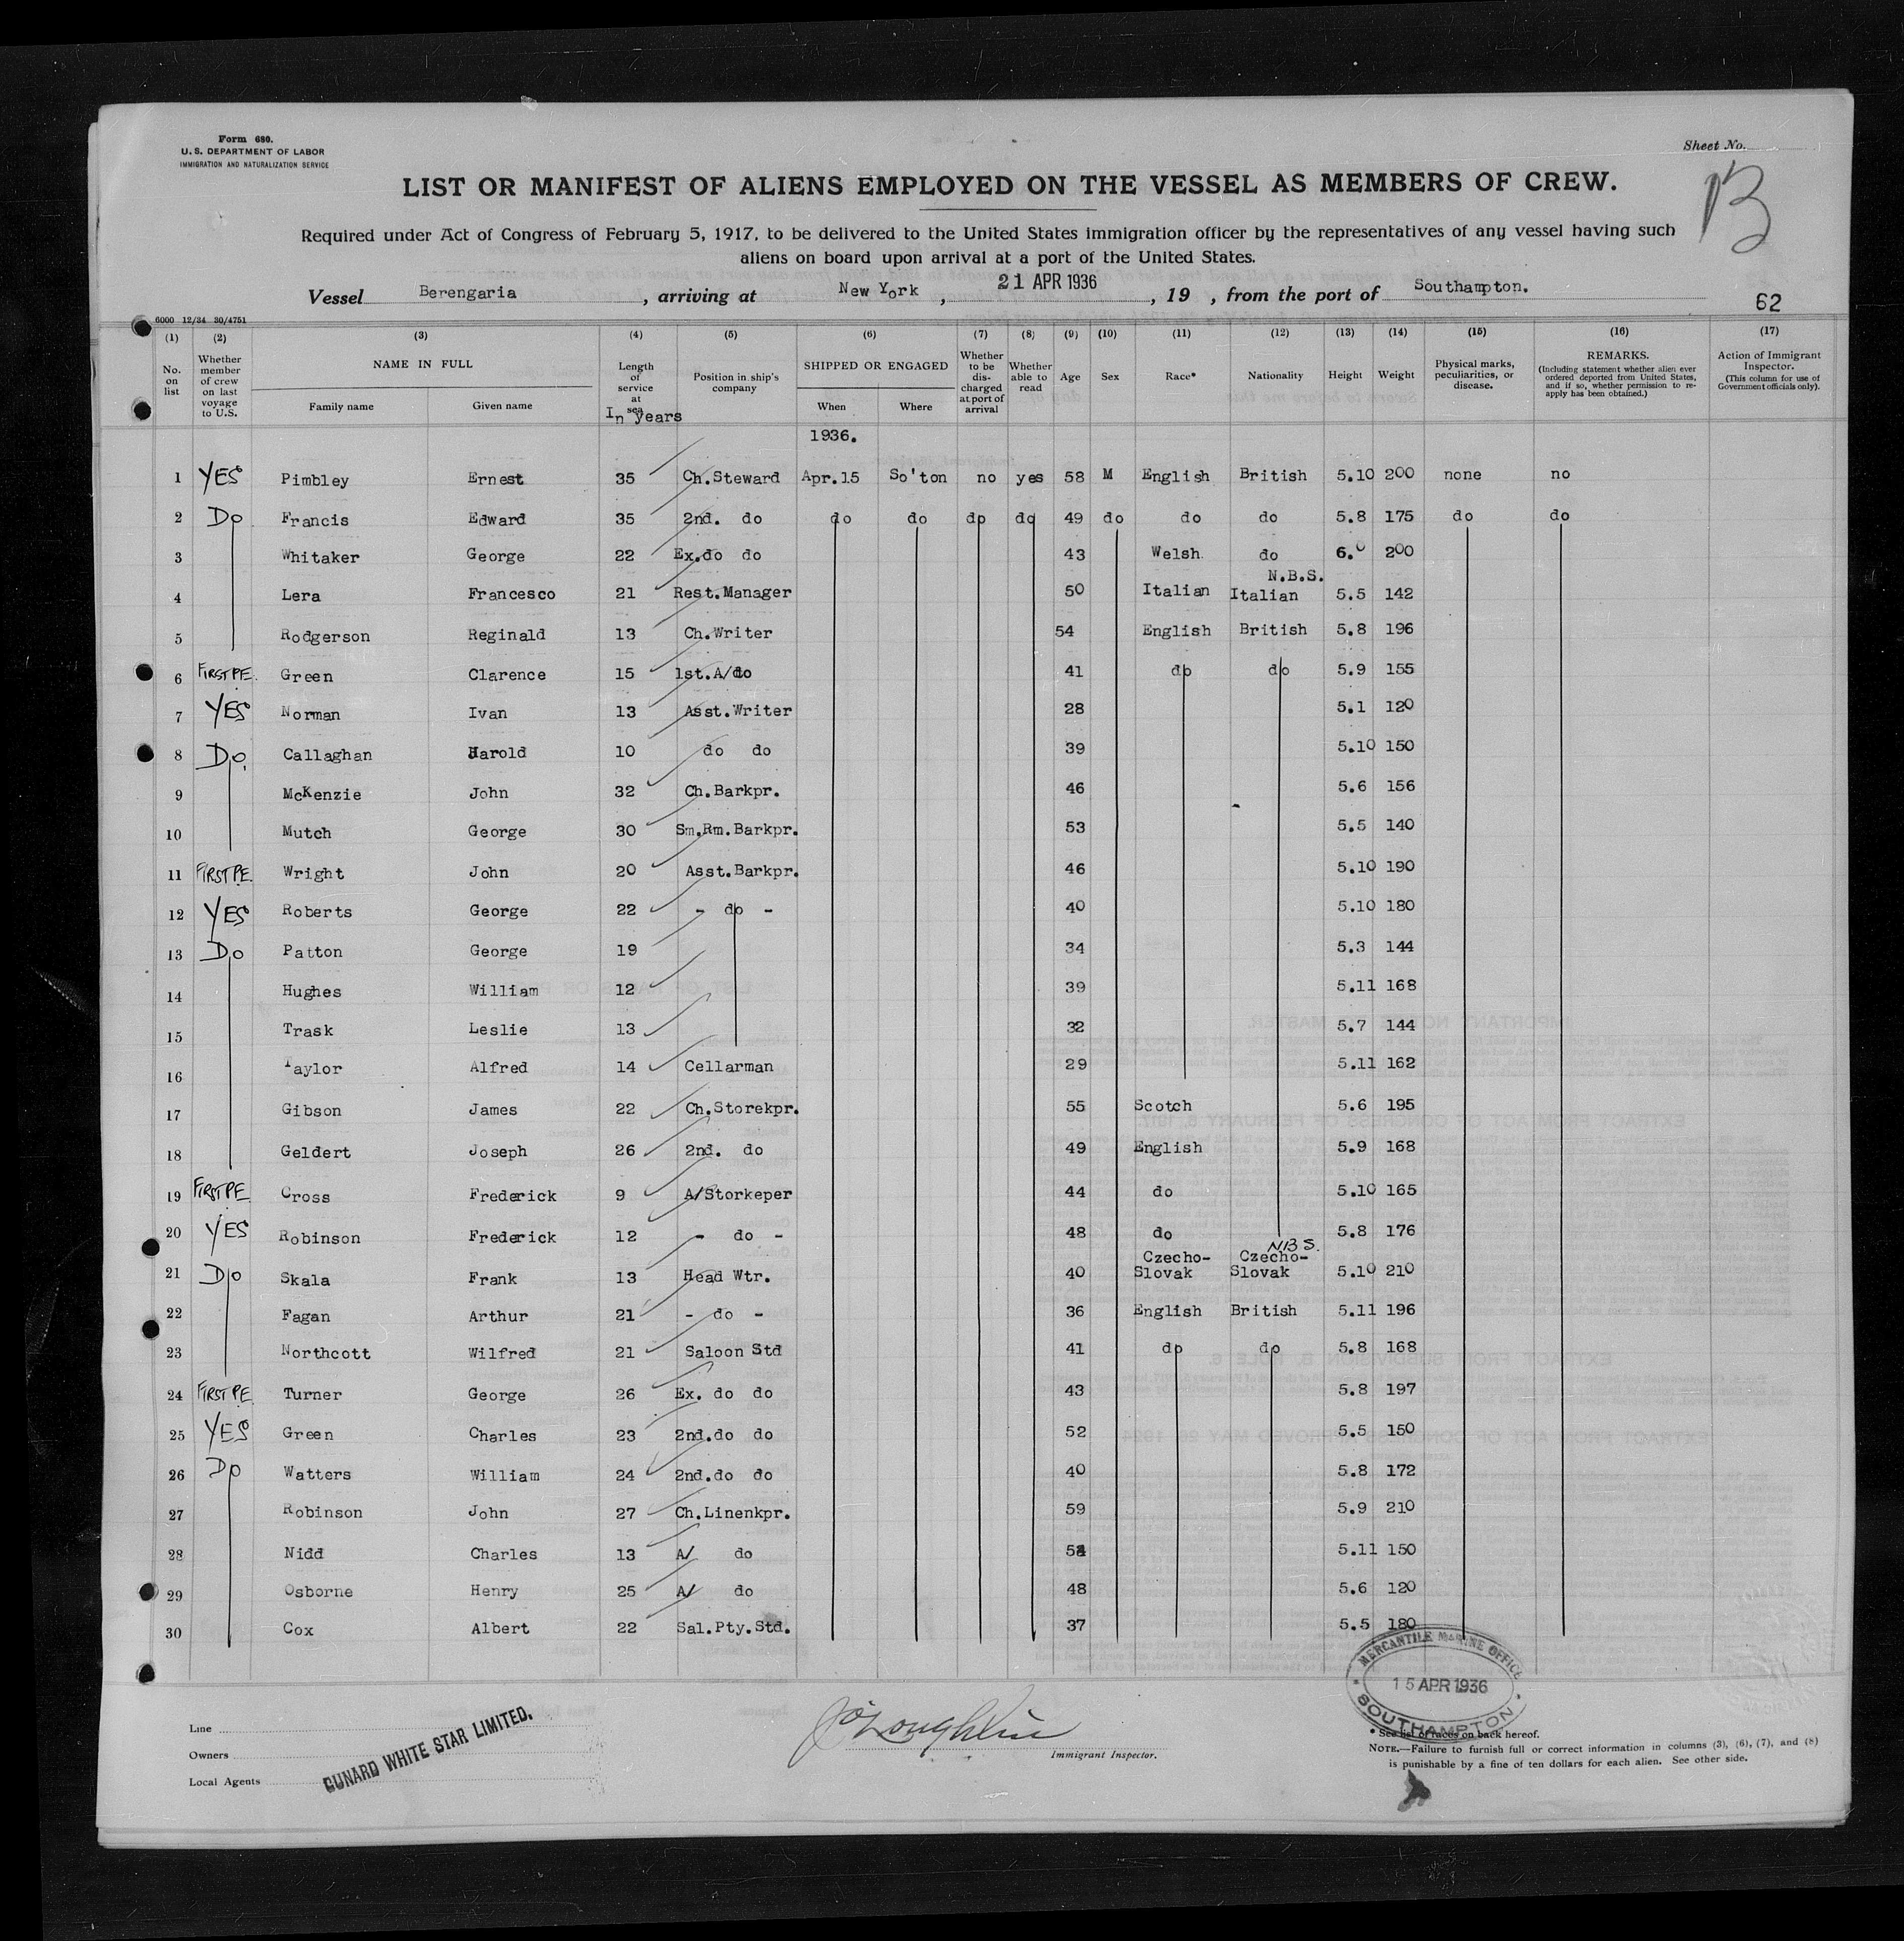 Form 680.
U. S. DEPARTMENT OF LABOR
IMMIGRATION AND NATURALIZATION SERVICE
Sheet No.
LIST OR MANIFEST OF ALIENS EMPLOYED ON THE VESSEL AS MEMBERS OF CREW.
B
Required under Act of Congress of February 5, 1917, to be delivered to the United States immigration officer by the representatives of any vessel having such
aliens on board upon arrival at a port of the United States.
Vessel Berengaria, arriving at New York, 21 APR 1936, 19 , from the port of Southampton.
62
6000 12/34 30/4751
(1) (2) (3) (4) (5) (6) (7) (8) (9) (10) (11) (12) (13) (14) (15) (16) (17)
No. on list Whether member of crew on last voyage to U.S. NAME IN FULL Family name Given name Length of service at sea In years Position in ship's company SHIPPED OR ENGAGED When Where Whether to be discharged at port of arrival Whether able to read Age Sex Race* Nationality Height Weight Physical marks, peculiarities, or disease. REMARKS. (Including statement whether alien ever ordered deported from United States, and if so, whether permission to re-apply has been obtained.) Action of Immigrant Inspector. (This column for use of Government officials only).
1936.
1 YES Pimbley Ernest 35 Ch.Steward Apr.15 So'ton no yes 58 M English British 5.10 200 none no
2 Do Francis Edward 35 2nd. do do do do do 49 do do do 5.8 175 do do
3 Whitaker George 22 Ex.do do 43 Welsh do 6.0 200
4 Lera Francesco 21 Rest.Manager 50 Italian N.B.S. Italian 5.5 142
5 Rodgerson Reginald 13 Ch.Writer 54 English British 5.8 196
6 FIRST P.E. Green Clarence 15 1st.A/do 41 do do 5.9 155
7 YES Norman Ivan 13 Asst.Writer 28 5.1 120
8 Do. Callaghan Harold 10 do do 39 5.10 150
9 McKenzie John 32 Ch.Barkpr. 46 5.6 156
10 Mutch George 30 Sm.Rm.Barkpr. 53 5.5 140
11 FIRST P.E. Wright John 20 Asst.Barkpr. 46 5.10 190
12 YES Roberts George 22 - do - 40 5.10 180
13 Do Patton George 19 34 5.3 144
14 Hughes William 12 39 5.11 168
15 Trask Leslie 13 32 5.7 144
16 Taylor Alfred 14 Cellarman 29 5.11 162
17 Gibson James 22 Ch.Storekpr. 55 Scotch 5.6 195
18 Geldert Joseph 26 2nd. do 49 English 5.9 168
19 FIRST P.E. Cross Frederick 9 A/Storkeper 44 do 5.10 165
20 YES Robinson Frederick 12 - do - 48 do 5.8 176
21 Do Skala Frank 13 Head Wtr. 40 Czecho-Slovak NBS. Czecho-Slovak 5.10 210
22 Fagan Arthur 21 - do - 36 English British 5.11 196
23 Northcott Wilfred 21 Saloon Std 41 do do 5.8 168
24 FIRST P.E. Turner George 26 Ex. do do 43 5.8 197
25 YES Green Charles 23 2nd.do do 52 5.5 150
26 Do Watters William 24 2nd.do do 40 5.8 172
27 Robinson John 27 Ch.Linenkpr. 59 5.9 210
28 Nidd Charles 13 A/ do 5.11 150
29 Osborne Henry 25 A/ do 48 5.6 120
30 Cox Albert 22 Sal.Pty.Std. 37 5.5 180
MERCANTILE MARINE OFFICE
15 APR 1936
SOUTHAMPTON
Line
Owners
Local Agents
CUNARD WHITE STAR LIMITED.
Immigrant Inspector.
* See list of races on back hereof.
NOTE.—Failure to furnish full or correct information in columns (3), (6), (7), and (8)
is punishable by a fine of ten dollars for each alien. See other side.